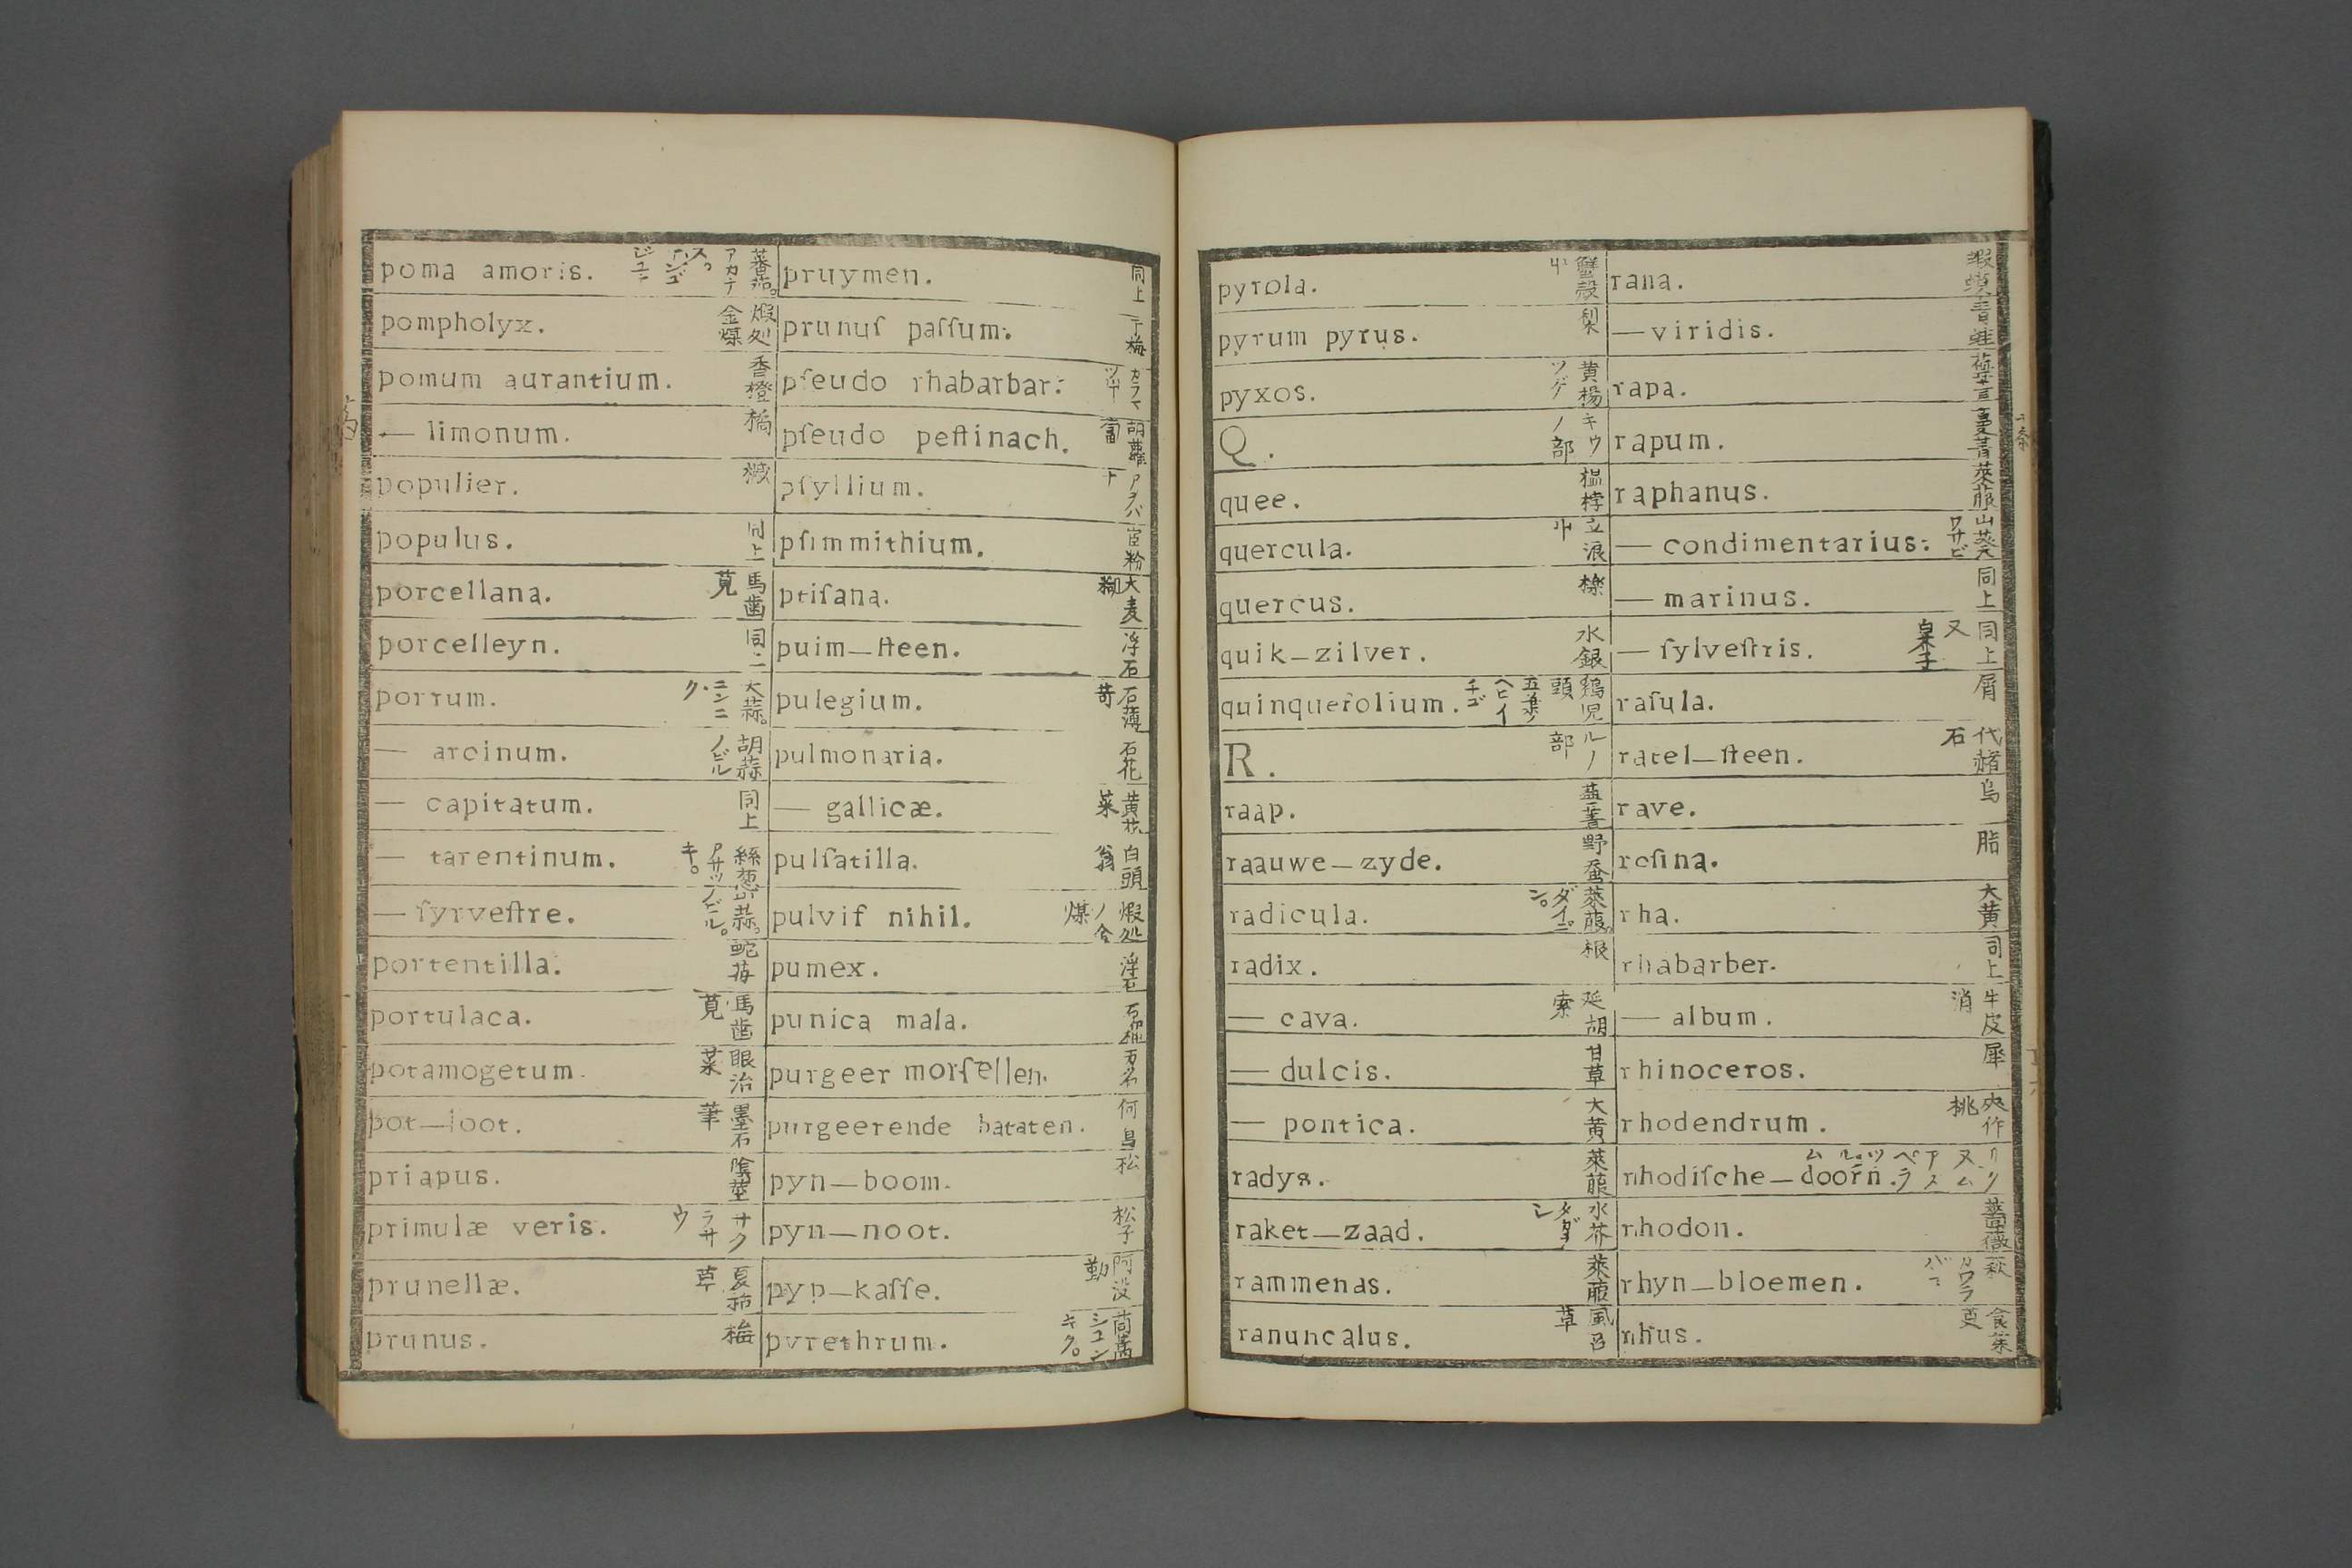 poma amoris. 蕃茄。アカナス。
pompholyx. 煆処金煤
pomum aurantium. 香橙
— limonum. 橘
populier.
populus. 同上
porcellana. 馬歯莧
porcelleyn. 同上
porrum. 大蒜。ニンニク.
— arcinum. 胡蒜ノビル
— capitatum. 同上
— tarentinum. 絲葱アサツキ。
— ſyrveſtre. 小蒜。ノビル。
portentilla. 蛇苺
portulaca. 馬歯莧
potamogetum. 眼治菜
pot—loot. 墨石筆
priapus. 陰茎
primulæ veris. サクラサウ
prunellæ. 夏枯草
prunus. 梅
pruymen. 同上
prunuſ paſſum. 干梅
pſeudo rhabarbar. カラマツサウ
pſeudo peſtinach. 胡蘿蔔
pſyllium.
pſimmithium. 宦粉
ptiſana. 大麦粥
puim—ſteen. 浮石
pulegium. 石薄苛
pulmonaria. 石花
— gallicæ. 黄花菜
pulſatilla. 白頭翁
pulvif nihil. 煆処ノ金煤
pumex. 浮石
punica mala. 石榴
purgeer morſellen. 方名
purgeerende bataten. 何昌
pyn—boom. 松
pyn—noot. 松子
pyn—kaſſe. 阿没勒
pyrethrum. 茼蒿シユンキク。
pyrola. 蟹殻サ
pyrum pyrus. 梨
pyxos. 黄楊ツゲ
Q. キウノ部
quee. 榲桲
quercula. 立浪サ
quercus. 櫟
quik—zilver. 水銀
quinquefolium. 鶏児頭 ヘビイチゴ
R. ルノ部
raap. 蕪菁
raauwe—zyde. 野蚕
radicula. 萊菔。ダイコン。
radix. 根
— cava. 延胡索
— dulcis. 甘草
— pontica. 大黄
radys. 萊菔
raket—zaad. 水芥
rammenas. 萊菔
ranuncalus. 風呂草
rana. 蝦蟆
— viridis. 青蛙
rapa.
rapum. 蔓菁
raphanus. 萊菔
— condimentarius. 山葵ワサビ
— marinus. 同上
— ſylveſtris. 同上又
raſula. 屑
ratel—ſteen. 代赭石
rave. 烏
reſina. 脂
rha. 大黄
rhabarber. 同上
— album. 牛皮消
rhinoceros. 犀
rhodendrum. 夾作桃
rhodiſche—doorn.
rhodon. 薔薇
rhyn—bloemen. 秋カワラ
rhus. 食茱萸